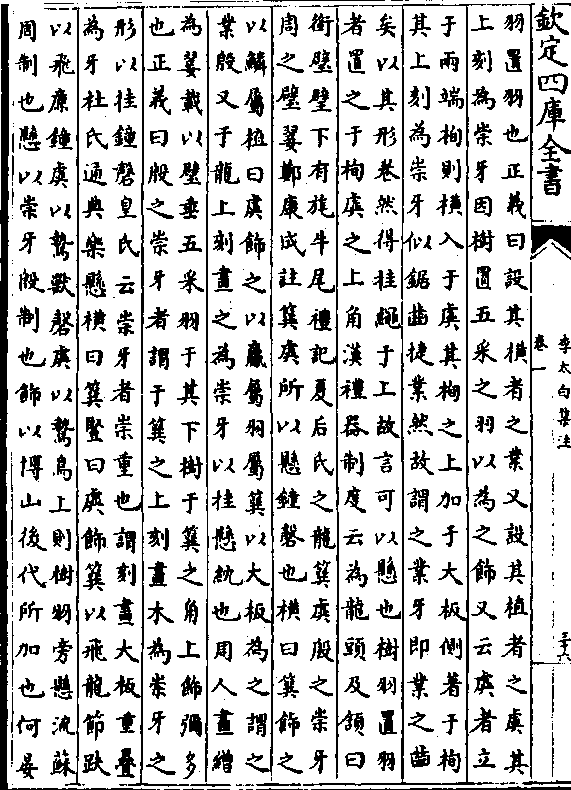 欽定四庫全書
李太白集注
卷一
三十八
羽置羽也正義曰設其橫者之業又設其植者之虡其
上刻為崇牙因樹置五采之羽以為之飾又云虡者立
于兩端栒則橫入于虡其栒之上加于大板側著于栒
其上刻為崇牙似鋸齒捷業然故謂之業牙即業之齒
矣以其形卷然得挂繩于上故言可以懸也樹羽置羽
者置之于栒虡之上角漢禮器制度云為龍頭及頷口
銜璧璧下有旄牛尾禮記夏后氏之龍簨虡殷之崇牙
周之璧翣鄭康成註簨虡所以懸鐘磬也橫曰簨飾之
以鱗屬植曰虡飾之以臝屬羽屬簨以大板為之謂之
業殷又于龍上刻畫之為崇牙以挂懸紘也周人畫繒
為翣載以璧垂五采羽于其下樹于簨之角上飾彌多
也正義曰殷之崇牙者謂于簨之上刻畫木為崇牙之
形以挂鐘磬皇氏云崇牙者崇重也謂刻畫大板重疊
為牙杜氏通典樂懸橫曰簨豎曰虡飾簨以飛龍飾趺
以飛廉鐘虡以鷙獸磬虡以鷙鳥上則樹羽旁懸流蘇
周制也懸以崇牙殷制也飾以博山後代所加也何晏